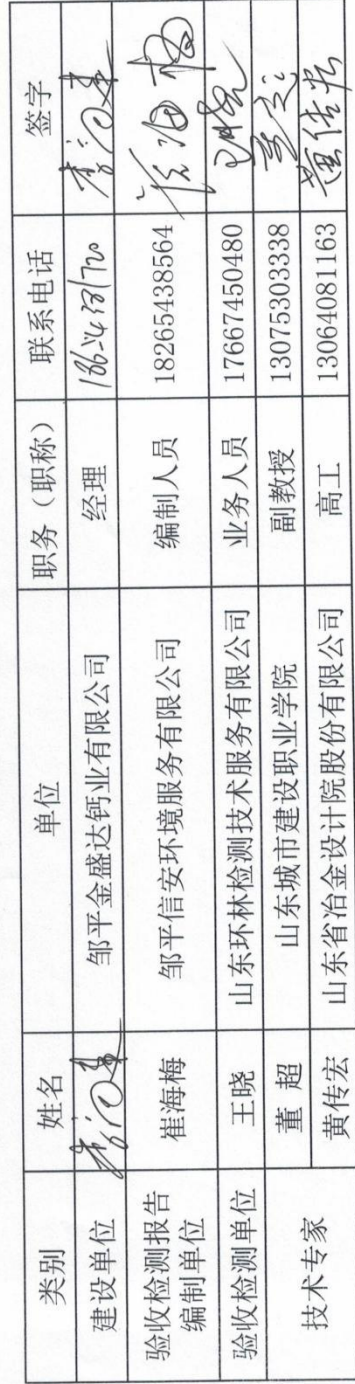 类别 姓名 单位 职务（职称） 联系电话 签字
建设单位 邹平金盛达钙业有限公司 经理
验收检测报告编制单位 崔海梅 邹平信安环境服务有限公司 编制人员 18265438564 崔海梅
验收检测单位 王晓 山东环林检测技术服务有限公司 业务人员 17667450480 王晓
技术专家 董超 山东城市建设职业学院 副教授 13075303338 董超
黄传宏 山东省冶金设计院股份有限公司 高工 13064081163 黄传宏